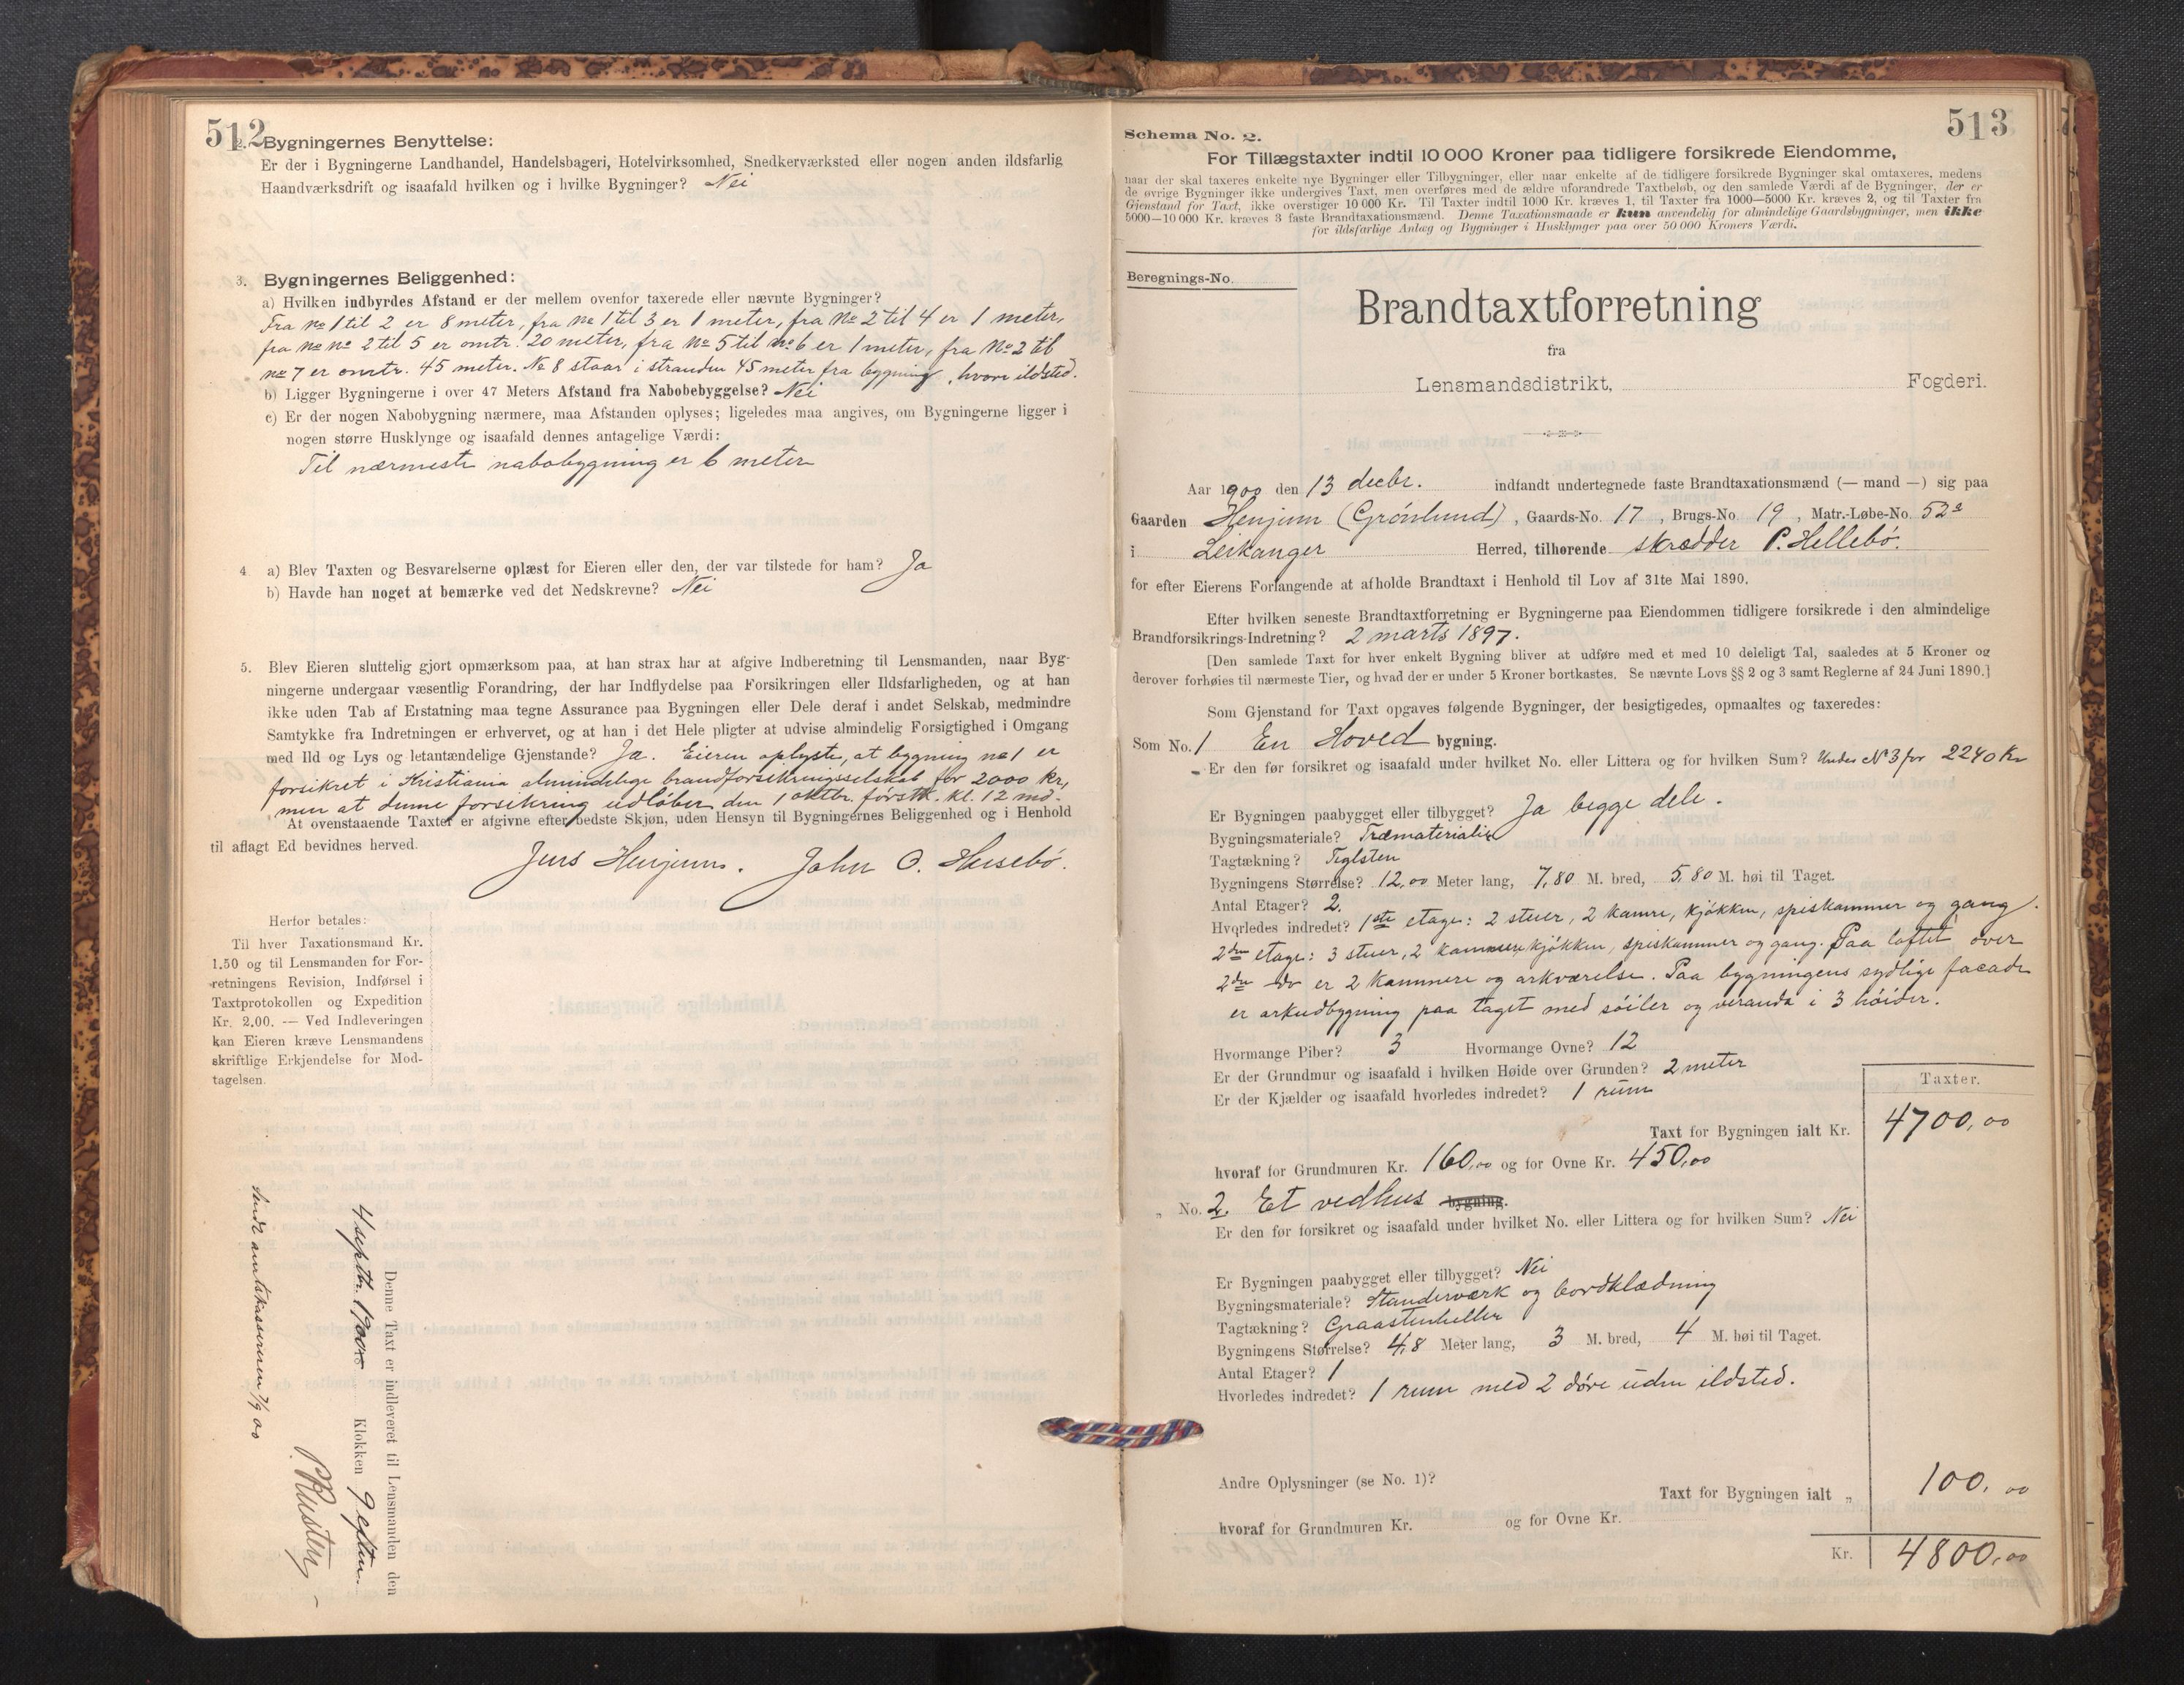 512
2. Bygningernes Benyttelse:
Er der i Bygningerne Landhandel, Handelsbageri, Hotelvirksomhed, Snedkerværksted eller nogen anden ildsfarlig
Haandværksdrift og isaafald hvilken og i hvilke Bygninger? Nei
3. Bygningernes Beliggenhed:
a) Hvilken indbyrdes Afstand er der mellem ovenfor taxerede eller nævnte Bygninger?
Fra No 1 til 2 er 8 meter, fra No 1 til 3 er 1 meter, fra No 2 til 4 er 1 meter,
fra No No 2 til 5 er omtr. 20 meter, fra No 5 til No 6 er 1 meter, fra No 2 til
No 7 er omtr. 45 meter. No 8 staar i stranden 45 meter fra bygning, hvori ildsted.
b) Ligger Bygningerne i over 47 Meters Afstand fra Nabobebyggelse? Nei
c) Er der nogen Nabobygning nærmere, maa Afstanden oplyses; ligeledes maa angives, om Bygningerne ligger i
nogen større Husklynge og isaafald dennes antagelige Værdi:
Til nærmeste nabobygning er 6 meter
4. a) Blev Taxten og Besvarelserne oplæst for Eieren eller den, der var tilstede for ham? Ja
b) Havde han noget at bemærke ved det Nedskrevne? Nei
5. Blev Eieren sluttelig gjort opmærksom paa, at han strax har at afgive Indberetning til Lensmanden, naar Byg-
ningerne undergaar væsentlig Forandring, der har Indflydelse paa Forsikringen eller Ildsfarligheden, og at han
ikke uden Tab af Erstatning maa tegne Assurance paa Bygningen eller Dele deraf i andet Selskab, medmindre
Samtykke fra Indretningen er erhvervet, og at han i det Hele pligter at udvise almindelig Forsigtighed i Omgang
med Ild og Lys og letantændelige Gjenstande? Ja. Eieren oplyste, at bygning no 1 er
forsikret i Kristiania almindelige brandforsikringsselskab for 2000 kr,
men at denne forsikring udløber den 1 oktbr. førstk. kl. 12 md.
At ovenstaaende Taxter er afgivne efter bedste Skjøn, uden Hensyn til Bygningernes Beliggenhed og i Henhold
til aflagt Ed bevidnes herved.
Jens Henjum. John O. Husebø.
Herfor betales:
Til hver Taxationsmand Kr.
1.50 og til Lensmanden for For-
retningens Revision, Indførsel i
Taxtprotokollen og Expedition
Kr. 2.00. — Ved Indleveringen
kan Eieren kræve Lensmandens
skriftlige Erkjendelse for Mod-
tagelsen.
Denne Taxt er indleveret til Lensmanden den
4 septbr. 1900 Klokken 9 eftm.
Sendt amtskassereren 7/9 00
513
Schema No. 2.
For Tillægstaxter indtil 10 000 Kroner paa tidligere forsikrede Eiendomme,
naar der skal taxeres enkelte nye Bygninger eller Tilbygninger, eller naar enkelte af de tidligere forsikrede Bygninger skal omtaxeres, medens
de øvrige Bygninger ikke undergives Taxt, men overføres med de ældre uforandrede Taxtbeløb, og den samlede Værdi af de Bygninger, der er
Gjenstand for Taxt, ikke overstiger 10 000 Kr. Til Taxter indtil 1000 Kr. kræves 1, til Taxter fra 1000—5000 Kr. kræves 2, og til Taxter fra
5000—10 000 Kr. kræves 3 faste Brandtaxationsmænd. Denne Taxationsmaade er kun anvendelig for almindelige Gaardsbygninger, men ikke
for ildsfarlige Anlæg og Bygninger i Husklynger paa over 50 000 Kroners Værdi.
Beregnings-No.
Brandtaxtforretning
fra
Lensmandsdistrikt, Fogderi.
Aar 1900 den 13 decbr. indfandt undertegnede faste Brandtaxationsmænd (— mand —) sig paa
Gaarden Henjum (Grønlund), Gaards-No. 17, Brugs-No. 19, Matr.-Løbe-No. 52a
i Leikanger Herred, tilhørende skrædder P. Hellebø.
for efter Eierens Forlangende at afholde Brandtaxt i Henhold til Lov af 31te Mai 1890.
Efter hvilken seneste Brandtaxtforretning er Bygningerne paa Eiendommen tidligere forsikrede i den almindelige
Brandforsikrings-Indretning? 2 marts 1897.
[Den samlede Taxt for hver enkelt Bygning bliver at udføre med et med 10 deleligt Tal, saaledes at 5 Kroner og
derover forhøies til nærmeste Tier, og hvad der er under 5 Kroner bortkastes. Se nævnte Lovs §§ 2 og 3 samt Reglerne af 24 Juni 1890.]
Som Gjenstand for Taxt opgaves følgende Bygninger, der besigtigedes, opmaaltes og taxeredes:
Som No. 1 En Hoved bygning.
Er den før forsikret og isaafald under hvilket No. eller Littera og for hvilken Sum? Under No 3 for 2240 Kr
Er Bygningen paabygget eller tilbygget? Ja begge dele.
Bygningsmateriale? Træmaterialier
Tagtækning? Teglsten
Bygningens Størrelse? 12,00 Meter lang, 7,80 M. bred, 5,80 M. høi til Taget.
Antal Etager? 2.
Hvorledes indredet? 1ste etage: 2 stuer, 2 kamre, kjøkken, spiskammer og gang.
2den etage: 3 stuer, 2 kammere, kjøkken, spiskammer og gang. Paa loftet over
2den do er 2 kammere og arkværelse. Paa bygningens sydlige facade
er arkudbygning paa taget med søiler og veranda i 3 høider.
Hvormange Piber? 3 Hvormange Ovne? 12
Er der Grundmur og isaafald i hvilken Høide over Grunden? 2 meter
Er der Kjælder og isaafald hvorledes indredet? 1 rum
Taxter.
Taxt for Bygningen ialt Kr. 4700,00
hvoraf for Grundmuren Kr. 160,00 og for Ovne Kr. 450,00
„ No. 2. Et vedhus bygning.
Er den før forsikret og isaafald under hvilket No. eller Littera og for hvilken Sum? Nei
Er Bygningen paabygget eller tilbygget? Nei
Bygningsmateriale? Standerværk og bordklædning
Tagtækning? Graastenheller
Bygningens Størrelse? 4,8 Meter lang, 3 M. bred, 4 M. høi til Taget.
Antal Etager? 1
Hvorledes indredet? 1 rum med 2 døre uden ildsted.
Andre Oplysninger (se No. 1)?
Taxt for Bygningen ialt „ 100,00
hvoraf for Grundmuren Kr. og for Ovne Kr.
Kr. 4800,00